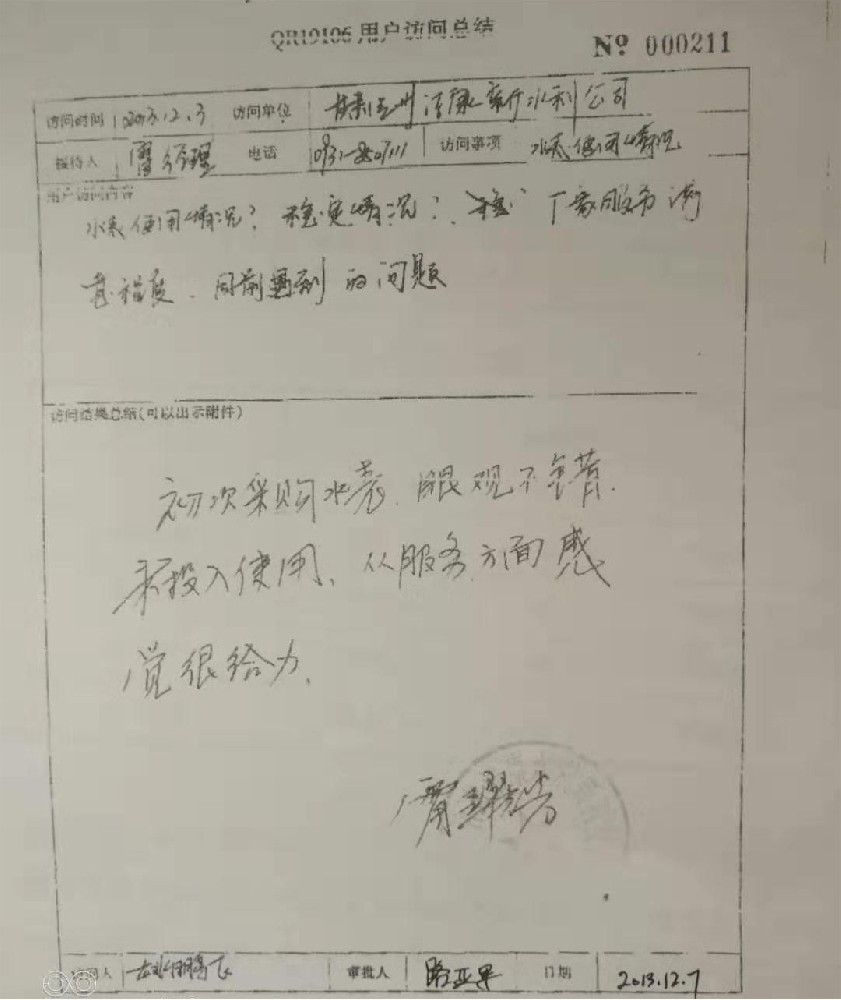 QR19106 用户访问总结
Nº 000211
访问时间 2013.12.3 访问单位 甘肃 水利公司
接待人 经理 电话 访问事项 水表使用情况
用户访问内容
水表使用情况? 稳定情况? 厂家服务满
意程度、目前遇到的问题
访问结果总结(可以出示附件)
初次采购水表、眼观不错、
未投入使用、从服务方面感
觉很给力、
审批人 日期 2013.12.7